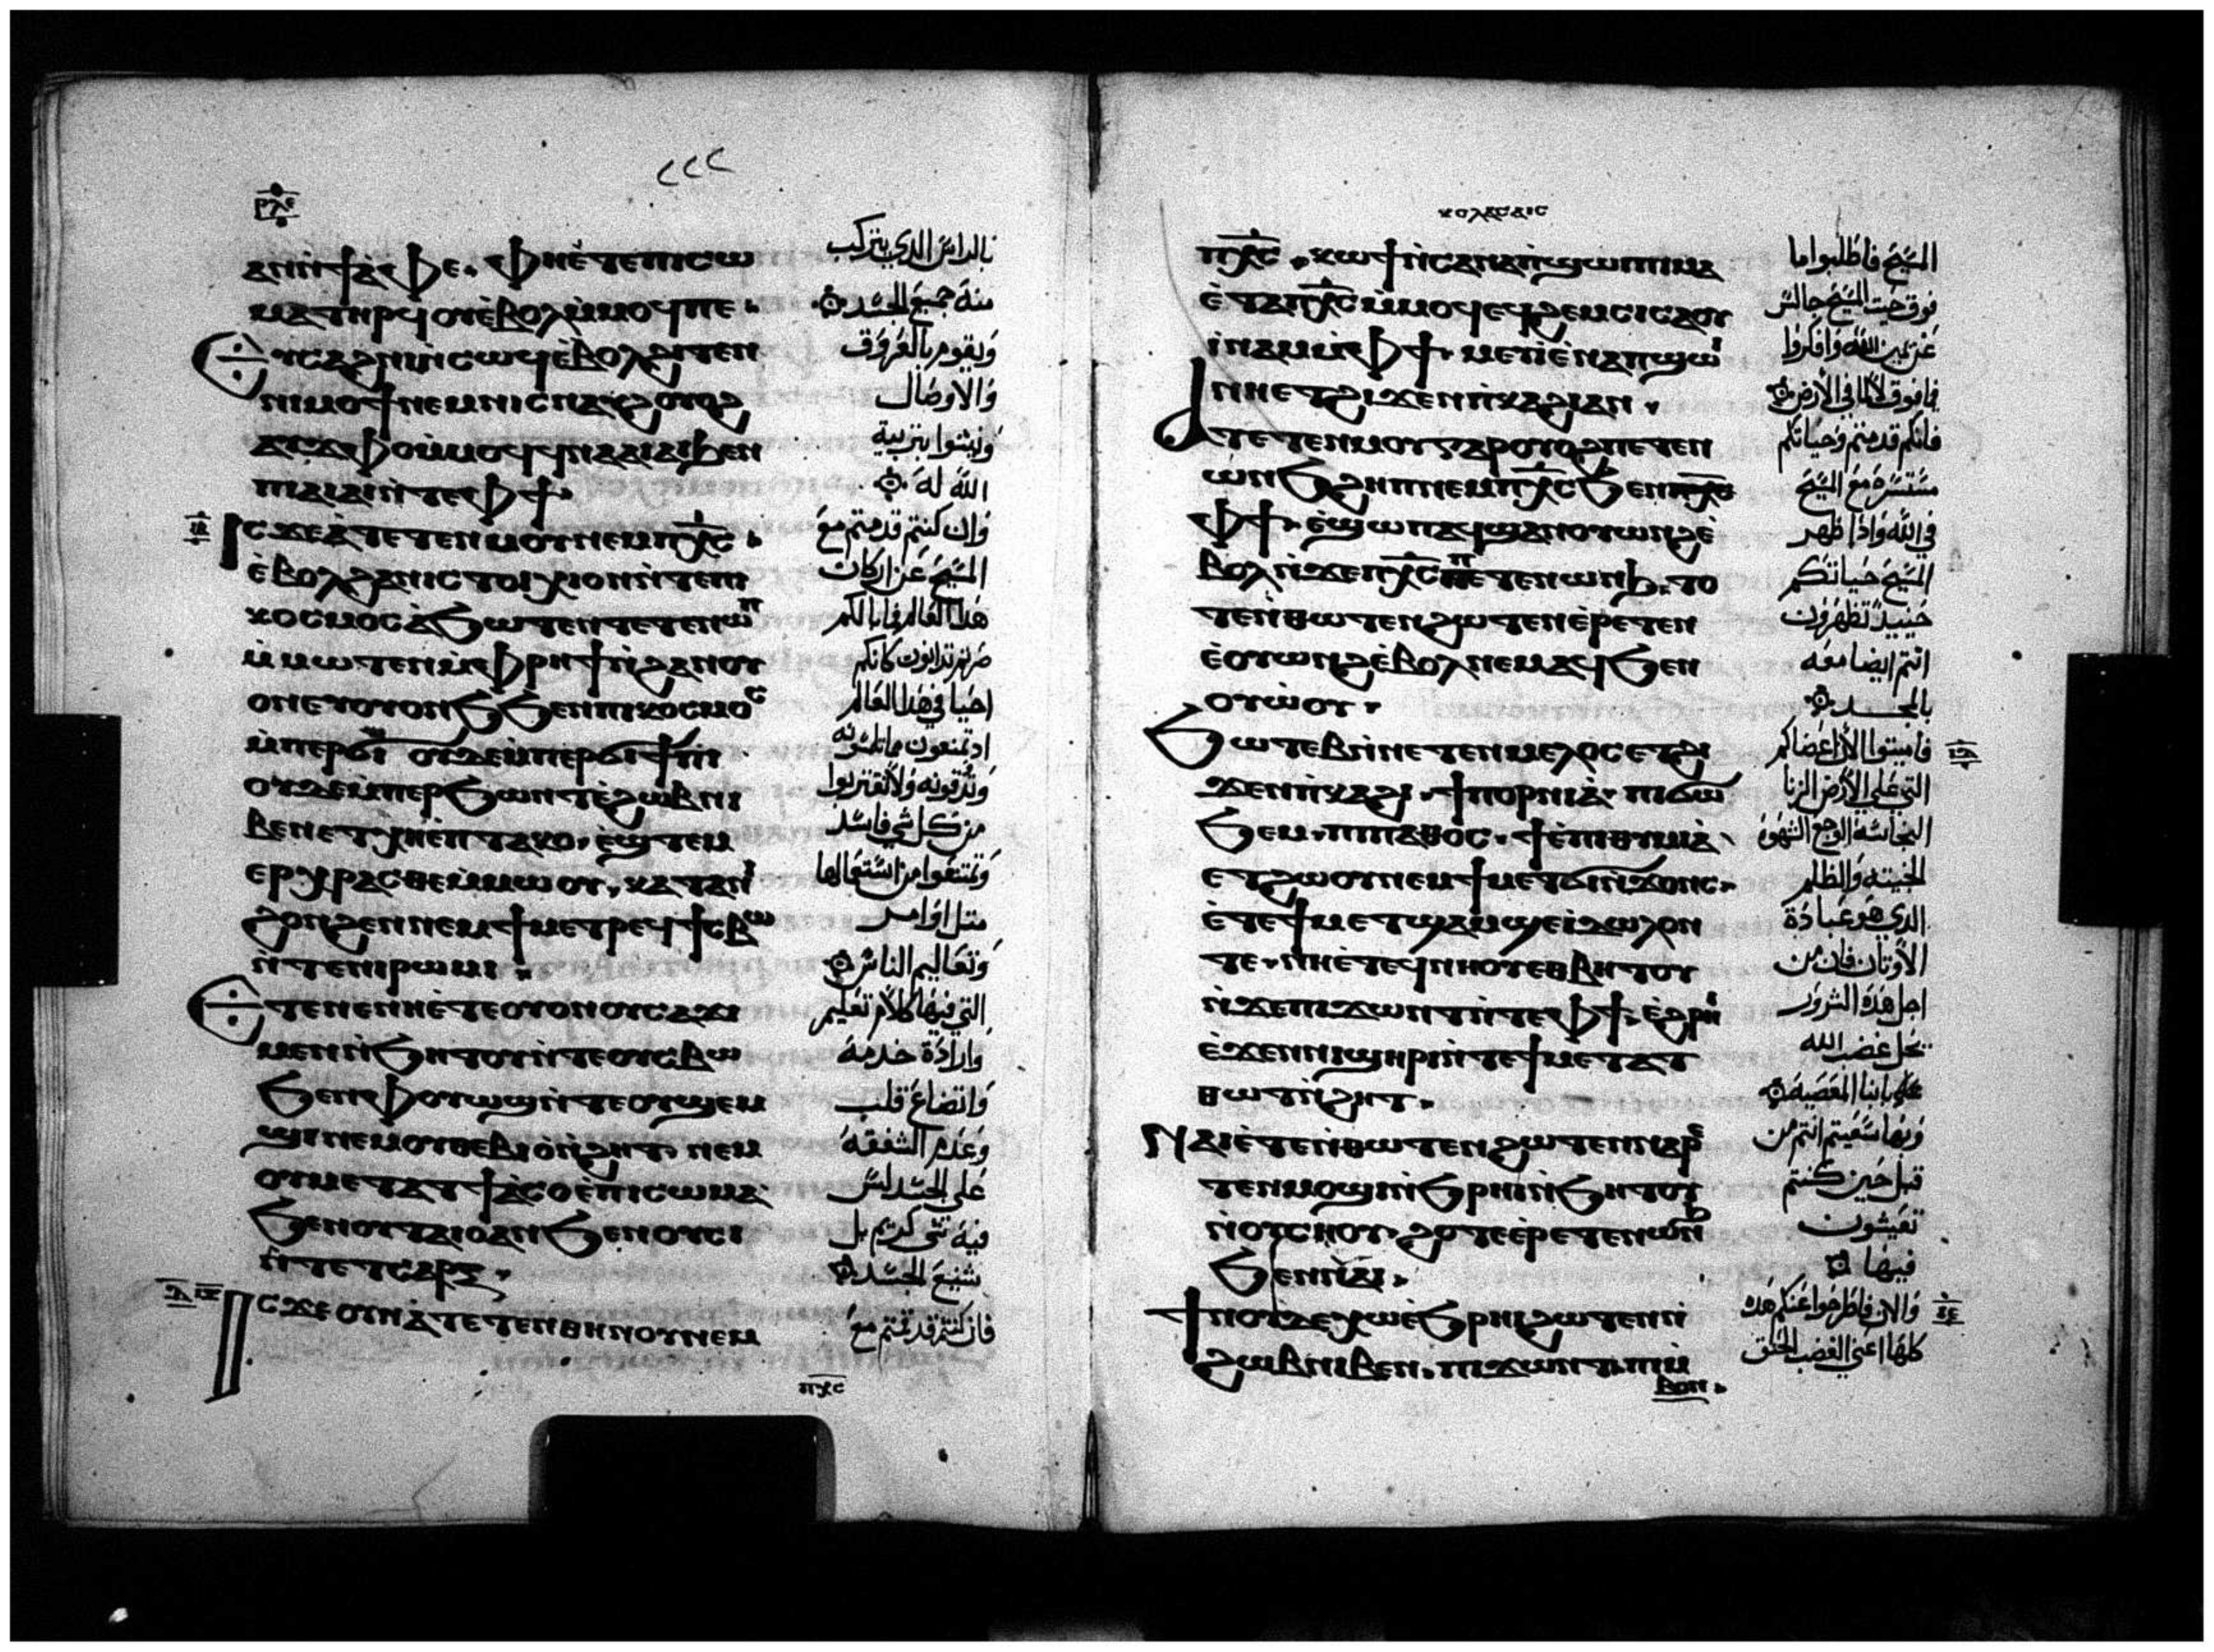 ⲣⲗⲉ
٢٢٢
ⲁⲛⲛϯⲁ̀ⲫⲉ. ⲫⲏⲉ̀ⲧⲉⲡⲓⲥⲱ
ⲙⲁⲧⲏⲣϥ ⲟⲩⲉ̀ⲃⲟⲗⲙ̀ⲙⲟϥⲡⲉ.
ⲉⲩⲥⲁϩⲛⲓⲛ̀ⲥⲱϥⲉ̀ⲃⲟⲗϩⲓⲧⲉⲛ
ⲛⲓⲙⲟϯⲛⲉⲙⲛⲓⲥⲛⲁⲩϩⲟⲩⲟϩ
ⲙ̀ⲙⲟϥϥⲛⲁⲁⲓⲁⲓϧⲉⲛ
ⲡⲓⲁⲓⲁⲓⲛ̀ⲧⲉⲫϯ.
ⲓⲥϫⲉⲁ̀ⲧⲉⲧⲉⲛⲙⲟⲩⲛⲉⲙⲡⲭ̅ⲥ̅.
ⲉ̀ⲃⲟⲗϩⲁⲛⲓⲥⲧⲟⲓⲭⲓⲟⲛⲛ̀ⲧⲉⲡⲓ
ⲕⲟⲥⲙⲟⲥⲁ̀ϧⲱⲧⲉⲛⲧⲉⲧⲉⲛⲱⲡ
ⲙ̀ⲙⲱⲧⲉⲛⲙ̀ⲫⲣⲏϯⲛ̀ϩⲁⲛⲟⲩ
ⲟⲛⲉⲧⲟⲩⲟⲛϧϧⲉⲛⲡⲓⲕⲟⲥⲙⲟⲥ
ⲙ̀ⲡⲉⲣϭⲓ ⲟⲩⲇⲉⲙ̀ⲡⲉⲣϭⲓϯⲡⲓ
ⲟⲩⲇⲉⲙ̀ⲡⲉⲣϧⲱⲛⲧⲉ̀ϩⲱⲃⲛⲓ
ⲃⲉⲛⲉⲧⲭⲏⲉ̀ⲡⲧⲁⲕⲟ. ⲉ̀ϣⲧⲉⲙ
ⲉⲣⲭⲣⲁⲥⲑⲉⲙ̀ⲙⲱⲟⲩ. ⲕⲁⲧⲁⲛⲓ
ϩⲟⲛϩⲉⲛⲛⲉⲙϯⲙⲉⲧⲣⲉϥϯⲥⲃⲱ
ⲛ̀ⲧⲉⲛⲓⲣⲱⲙⲓ.
ⲉⲧⲉⲛⲉⲛⲛⲏⲉ̀ⲧⲉⲟⲩⲟⲛⲟⲩⲥⲁϫⲓ
ⲙⲉⲛⲛ̀ϧⲏⲧⲟⲩⲛ̀ⲧⲉⲟⲩⲥⲃⲱ
ϧⲉⲛⲫⲟⲩⲱϣⲛ̀ⲧⲉⲟⲩϣⲉⲙ
ϣⲓⲛⲉⲙⲟⲩⲑⲉⲃⲓⲟ̀ⲛ̀ϩⲏⲧ. ⲛⲉⲙ
ⲟⲩⲙⲉⲧⲁⲧϯⲁ̀ⲥⲟⲉ̀ⲡⲓⲥⲱⲙⲁ
ϧⲉⲛⲟⲩⲧⲁⲓⲟⲁⲛϧⲉⲛⲟⲩⲥⲓ
ⲛ̀ⲧⲉⲧⲥⲁⲣⲝ.
ⲓⲥϫⲉⲟⲩⲛⲁ̀ⲧⲉⲧⲉⲛⲑⲏⲛⲟⲩⲛⲉⲙ
ⲡⲭ̅ⲥ̅
بالراس الذي يتركب
منه جميع الجسد
ويقوم بالعروق
والاوصال
وينشوا بتربية
الله له
وان كنتم قد متم مع
المسيح عن اركان
هذا العالم فما بالكم
كانكم
احيا في هذا العالم
من كل شي فاسد
وتمتنعوا من استعمالها
مثل اوامر
وتعاليم الناس
التي فيها كلام تعليم
وارادة خدمة
واتضاع قلب
وعدم الشفقة
على الجسد ليس
فيه شي كريم بل
شبع الجسد
فان كنتم قد قمتم مع
ⲕⲟⲗⲁⲥⲁⲓⲥ
ⲡⲭ̅ⲥ̅. ⲕⲱϯⲛ̀ⲥⲁⲛⲁⲡ̀ϣⲱⲓⲡⲓⲙⲁ
ⲉ̀ⲧⲁⲡⲭ̅ⲥ̅ⲙ̀ⲙⲟϥⲉϥϩⲉⲙⲥⲓⲥⲁⲟⲩ
ⲓ̀ⲛⲁⲙⲙ̀ⲫϯ. ⲙⲉⲩⲓⲉ̀ⲛⲁⲡϣⲱⲓ
ⲛⲛⲉⲧϩⲓϫⲉⲛⲡ̀ⲕⲁϩⲓⲁⲛ.
ⲁⲧⲉⲧⲉⲛⲙⲟⲩⲅⲁⲣⲟⲩⲟϩⲡⲉⲧⲉⲛ
ⲱⲛϧϩⲏⲡⲛⲉⲙⲡⲭ̅ⲥ̅ϧⲉⲛ
ⲫϯ. ⲉ̀ϣⲱⲡⲁϥϣⲁⲛⲟⲩⲱⲛϩⲉ̀
ⲃⲟⲗⲛ̀ϫⲉⲡⲭ̅ⲥ̅ⲡⲉⲧⲉⲛⲱⲛϧ. ⲧⲟ
ⲧⲉⲛ̀ⲑⲱⲧⲉⲛϩⲱⲧⲉⲛⲉ̀ⲣⲉⲧⲉⲛ
ⲉ̀ⲟⲩⲱⲛϩⲉ̀ⲃⲟⲗⲛⲉⲙⲁϥϧⲉⲛ
ⲟⲩⲱ̀ⲟⲩ.
ϧⲱⲧⲉⲃⲛ̀ⲛⲉⲧⲉⲛⲙⲉⲗⲟⲥⲉⲧϩⲓ
ϫⲉⲛⲡ̀ⲕⲁϩⲓ. ϯⲡⲟⲣⲛⲓⲁ̀. ⲡⲓϭⲱ
ϧⲉⲙ. ⲡⲓⲡⲁⲑⲟⲥ. ϯⲉ̀ⲡⲓⲑⲩⲙⲓⲁ̀
ⲉⲧϩⲱⲟⲩⲛⲉⲙϯⲙⲉⲧϭⲓⲛ̀ϫⲟⲛⲥ.
ⲉ̀ⲧⲉϯⲙⲉⲧϣⲁⲙϣⲉⲓ̀ⲇⲱⲗⲟⲛ
ⲧⲉ. ⲛ̀ⲛⲏⲉ̀ⲧⲉϥⲛⲏⲟⲩⲉⲑⲃⲏⲧⲟⲩ
ⲛ̀ϫⲉⲡⲓϫⲱⲛⲧⲛ̀ⲧⲉⲫϯ. ⲉ̀ϩⲣⲏⲓ
ⲉ̀ϫⲉⲛⲛⲓϣⲏⲣⲓⲛ̀ⲧⲉϯⲙⲉⲧⲁⲧ
ⲑⲱⲧⲛ̀ϩⲏⲧ.
ⲛⲁⲓⲉ̀ⲧⲉⲛ̀ⲑⲱⲧⲉⲛϩⲱⲧⲉⲛⲛⲁⲣⲉ
ⲧⲉⲛⲙⲟϣⲓⲛ̀ϧⲣⲏⲓⲛ̀ϧⲏⲧⲟⲩ
ⲛ̀ⲟⲩⲥⲏⲟⲩ. ϩⲟⲧⲉⲉ̀ⲣⲉⲧⲉⲛⲱⲛϧ
ϧⲉⲛⲛⲁⲓ.
ϯⲛⲟⲩⲇⲉⲭⲱⲉ̀ϧⲣⲏⲓϩⲱⲧⲉⲛⲛ̀
ϩⲱⲃⲛⲓⲃⲉⲛ. ⲡⲓϫⲱⲛⲧ. ⲡⲓⲙ̀
ⲃⲟⲛ.
المسيح فاطلبوا ما
فوق حيث المسيح جالس
عن يمين الله وافكروا
فيما فوق لا فيما في الارض
فانكم قد متم وحياتكم
مستترة مع المسيح
في الله واذا ظهر
المسيح حياتكم
حينيذ تظهرون
انتم ايضا معه
بالمجد
فاميتوا الان اعضاكم
التي على الارض الزنا
النجاسة الوجع الشهوة
الخبيثة والظلم
الذي هو عبادة
الاوثان فان من
اجل هذه الشرور
يحل غضب الله
على ابنا المعصية
وبها سعيتم انتم من
قبل حين كنتم
تعيشون
فيها
والان فاطرحوا عنكم هذه
كلها اعني الغضب الحنق